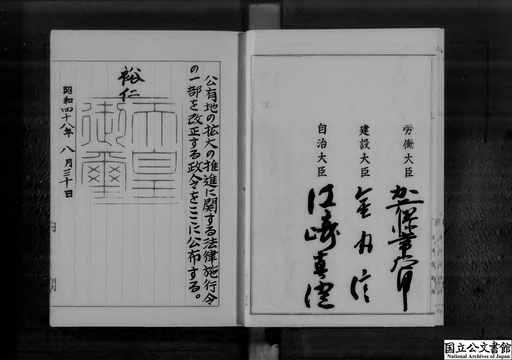 労働大臣 加藤常太郎
建設大臣 金丸信
自治大臣 江崎真澄
公有地の拡大の推進に関する法律施行令
の一部を改正する政令をここに公布する。
裕仁
天皇
御璽
昭和四十八年八月三十日
内閣
国立公文書館
National Archives of Japan